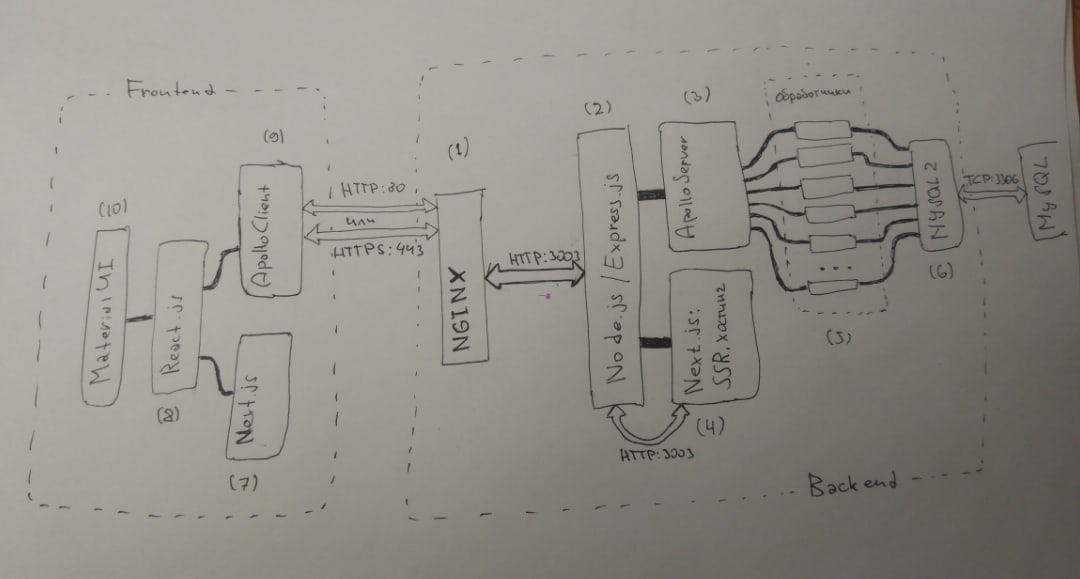 Frontend
(10)
Material UI
React.js
(8)
(9)
ApolloClient
Next.js
(7)
HTTP:80
или
HTTPS:443
(1)
NGINX
HTTP:3003
(2)
Node.js / Express.js
(3)
ApolloServer
Next.js:
SSR, хостинг
(4)
HTTP:3003
обработчики
...
(5)
MySQL2
(6)
TCP:3306
MySQL
Backend